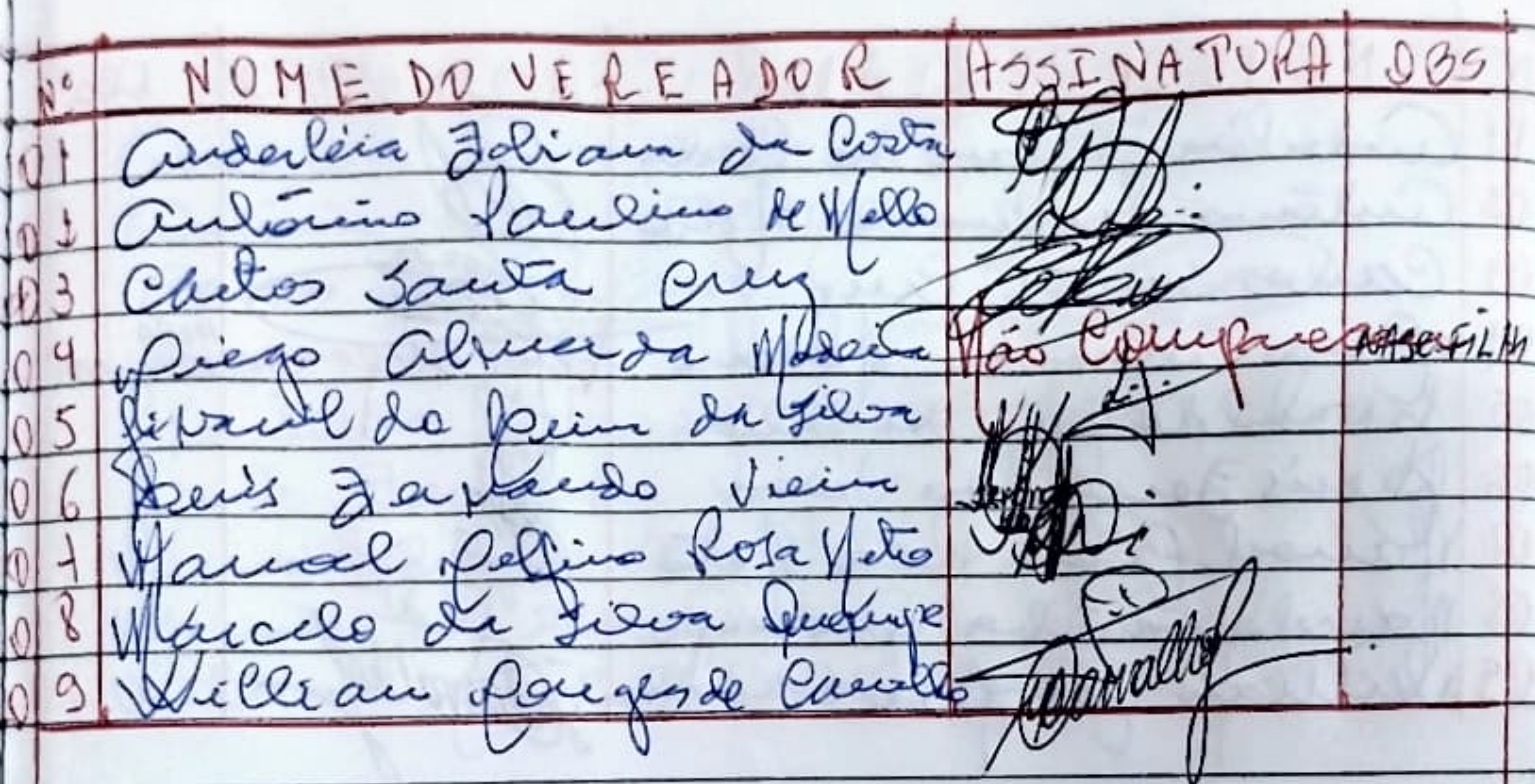 Nº NOME DO VEREADOR ASSINATURA OBS
01 Anderléia Fabiana da Costa
02 Antônino Paulino de Mello
03 Carlos Santa Cruz
04 Diego Almeida Madeira Não Compareceu
05 da Silva
06 Luis Fernando Vieira
07 Manoel Delfino Rosa Neto
08 Marcelo da Silva
09 Willian Borges de Carvalho